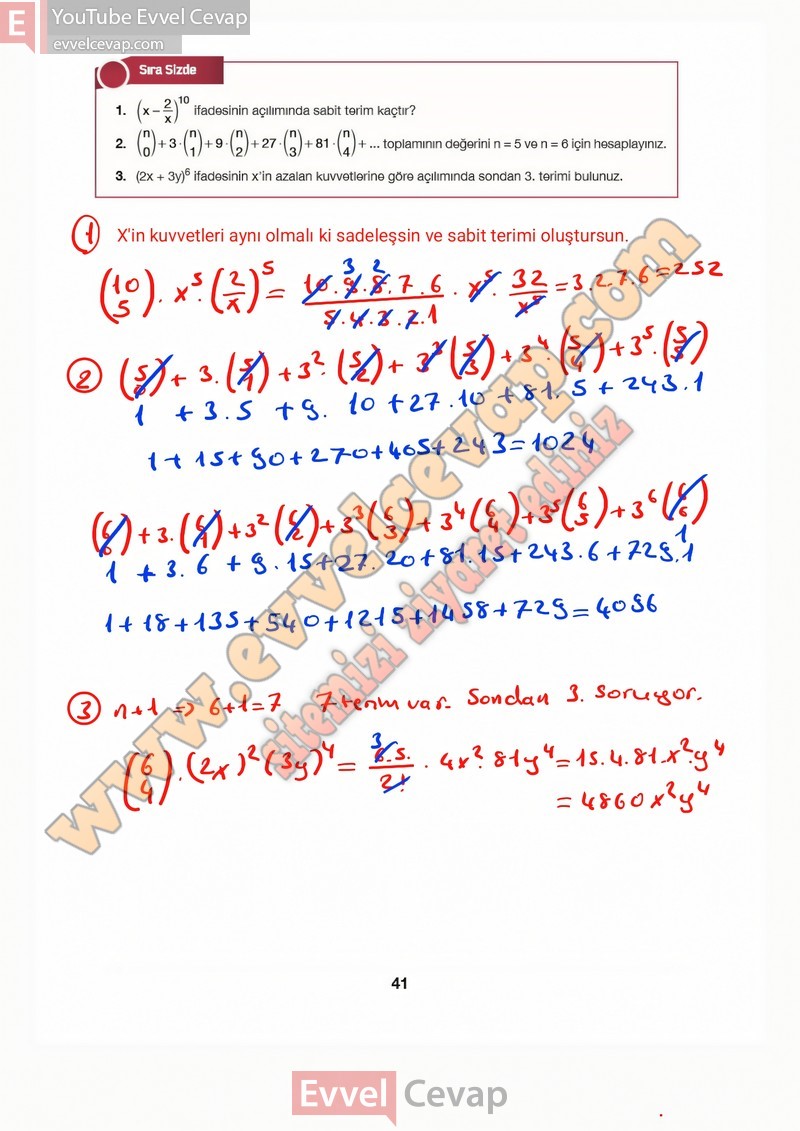 E YouTube Evvel Cevap
evvelcevap.com
Sıra Sizde
1. (x – 2/x)^10 ifadesinin açılımında sabit terim kaçtır?
2. (n 0) + 3 · (n 1) + 9 · (n 2) + 27 · (n 3) + 81 · (n 4) + ... toplamının değerini n = 5 ve n = 6 için hesaplayınız.
3. (2x + 3y)^6 ifadesinin x'in azalan kuvvetlerine göre açılımında sondan 3. terimi bulunuz.
1 X'in kuvvetleri aynı olmalı ki sadeleşsin ve sabit terimi oluştursun.
(10 5) . x^5 . (2/x)^5 = 10.9.8.7.6 / 5.4.3.2.1 . x^5 . 32/x^5 = 3.2.7.6 = 252
3 2
2 (5 0) + 3.(5 1) + 3^2.(5 2) + 3^3(5 3) + 3^4.(5 4) + 3^5.(5 5)
1 + 3.5 + 9.10 + 27.10 + 81.5 + 243.1
1 + 15 + 90 + 270 + 405 + 243 = 1024
(6 0) + 3.(6 1) + 3^2(6 2) + 3^3(6 3) + 3^4(6 4) + 3^5(6 5) + 3^6(6 6)
1 + 3.6 + 9.15 + 27.20 + 81.15 + 243.6 + 729.1
1 + 18 + 135 + 540 + 1215 + 1458 + 729 = 4096
3 n+1 => 6+1=7 7 terim var. Sondan 3. soruyor.
(6 4).(2x)^2(3y)^4 = 6.5/2! . 4x^2.81y^4 = 15.4.81.x^2.y^4
3
= 4860x^2y^4
www.evvelcevap.com
sitemizi ziyaret ediniz
41
Evvel Cevap